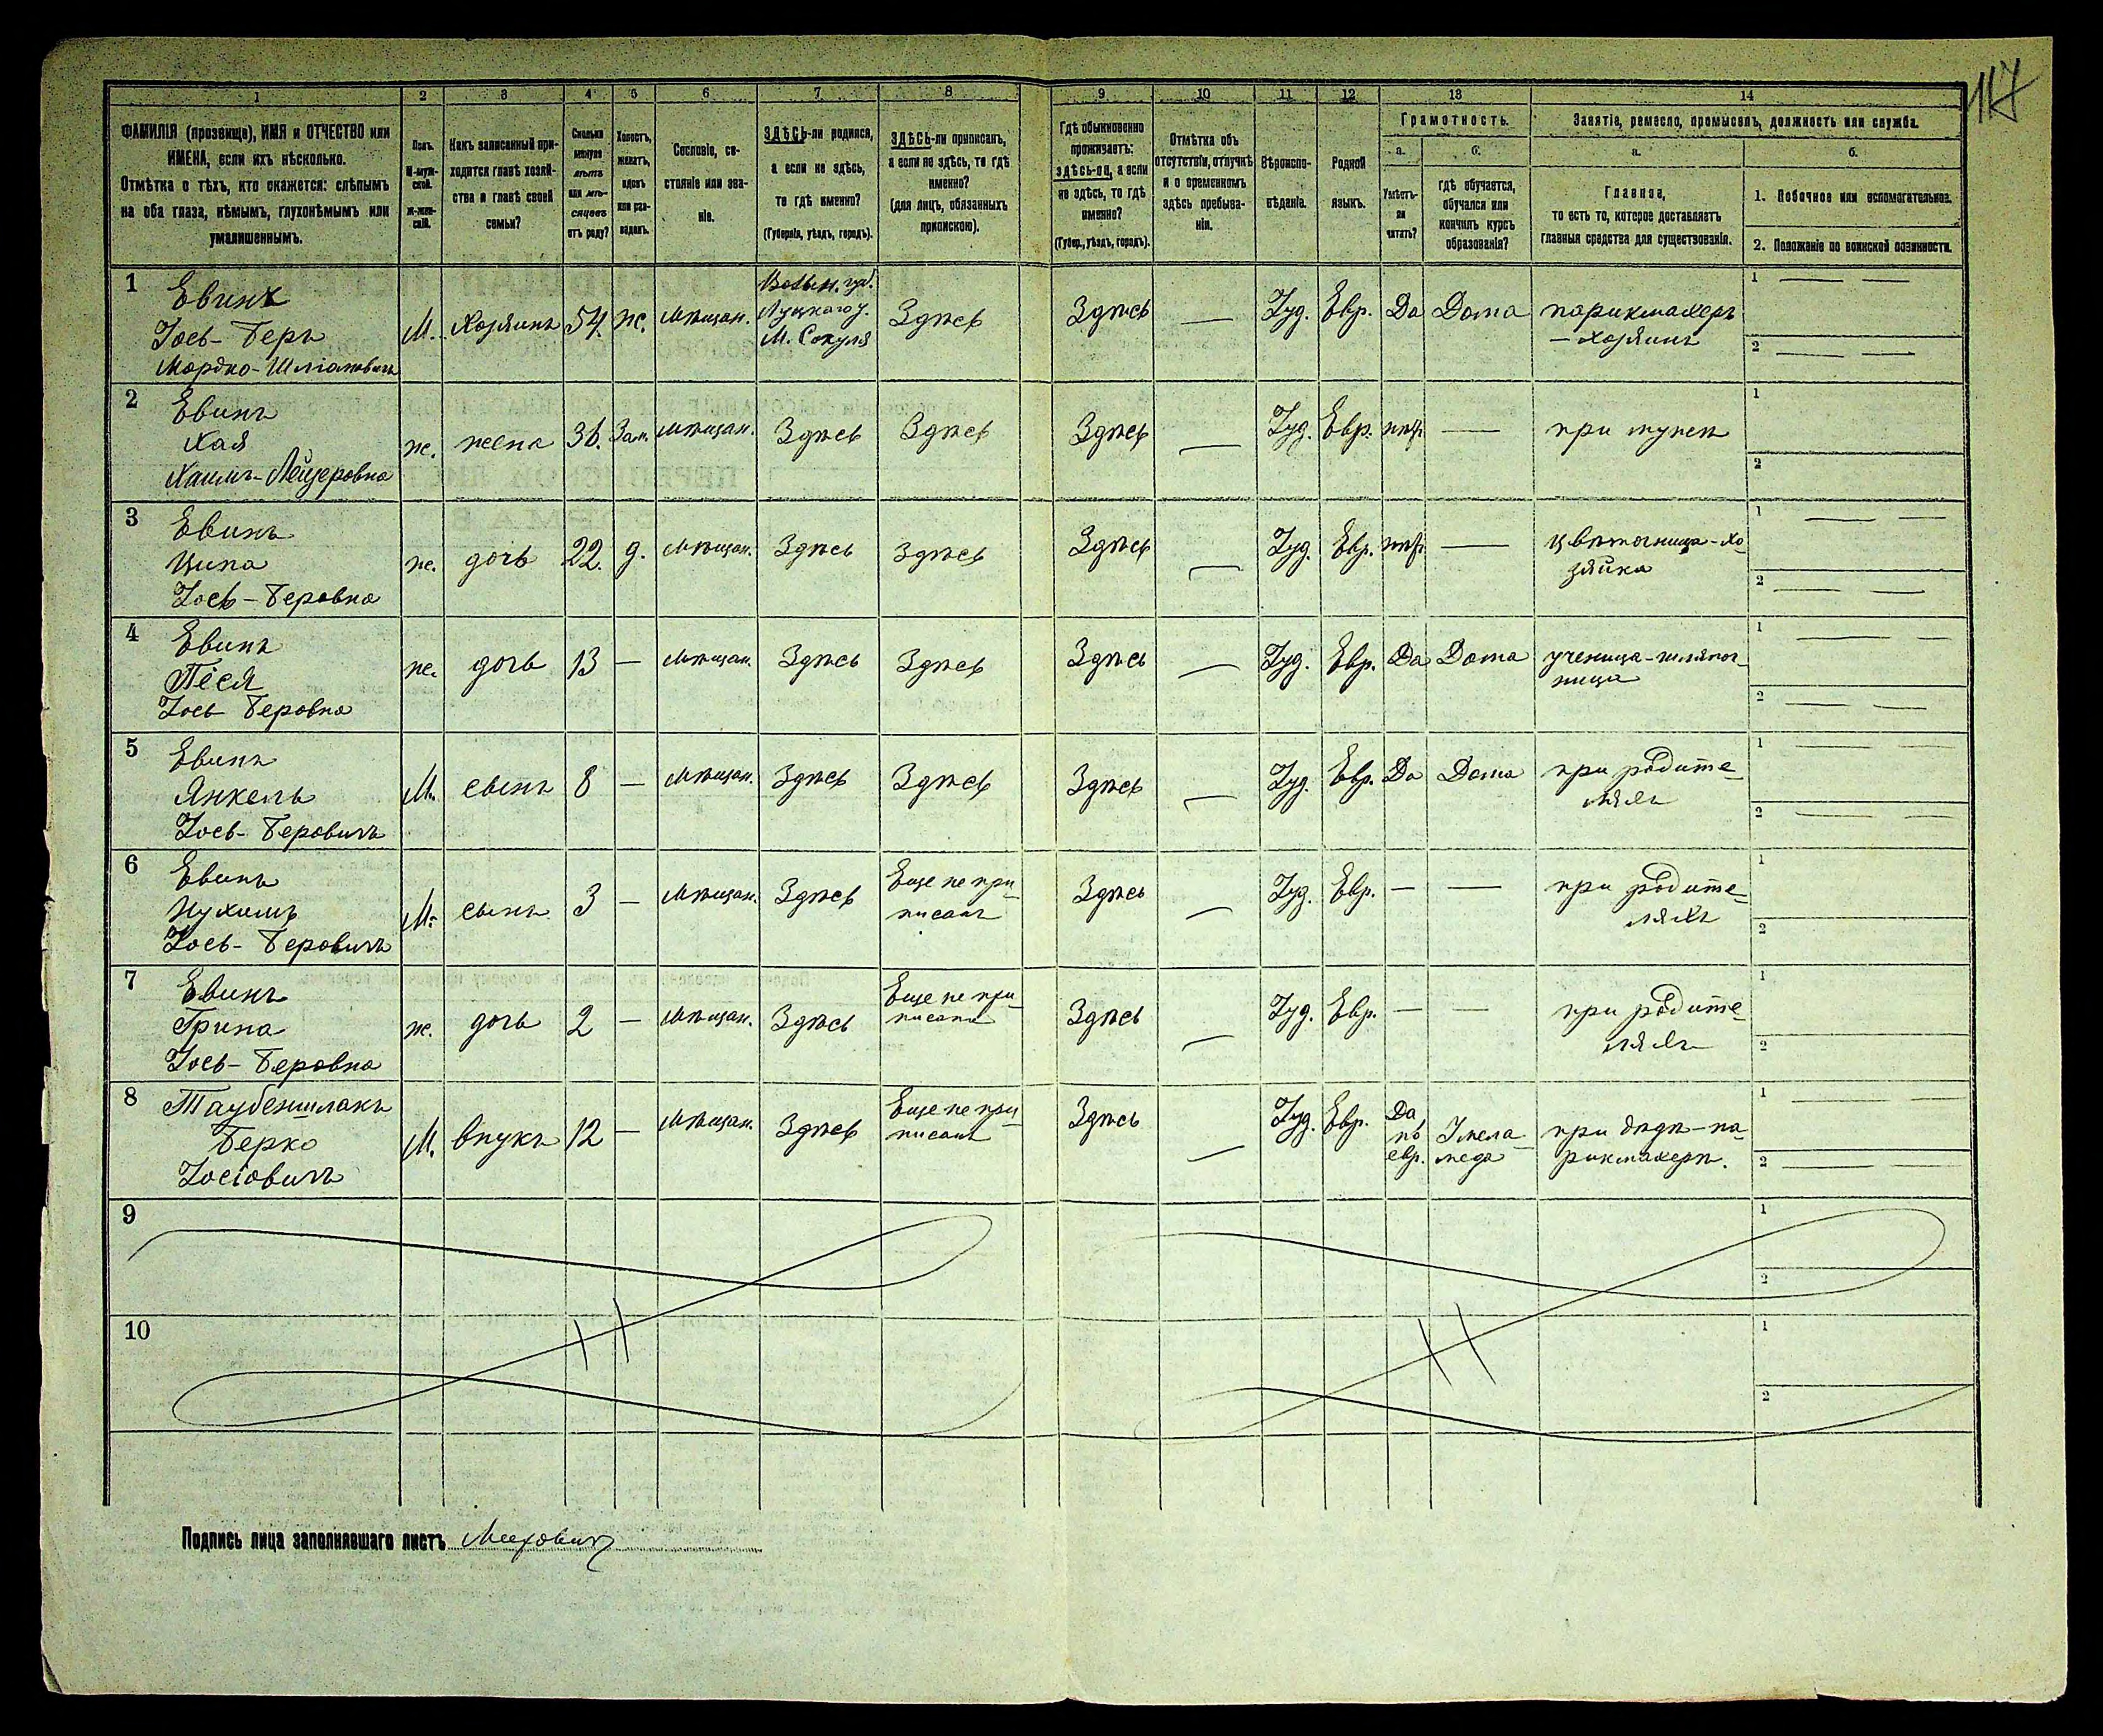 117
1 2 3 4 5 6 7 8 9 10 11 12 13 14
ФАМИЛІЯ (прозвище), ИМЯ и ОТЧЕСТВО или
ИМЕНА, если ихъ нѣсколько.
Отмѣтка о тѣхъ, кто окажется: слѣпымъ
на оба глаза, нѣмымъ, глухонѣмымъ или
умалишеннымъ.
Полъ.
М-муж-
ской.
Ж-жен-
скій.
Какъ записанный при-
ходится главѣ хозяй-
ства и главѣ своей
семьи?
Сколько
минуло
лѣтъ
или мѣ-
сяцевъ
отъ роду?
Холостъ,
женатъ,
вдовъ
или раз-
веденъ.
Сословіе, со-
стояніе или зва-
ніе.
ЗДѢСЬ-ли родился,
а если не здѣсь,
то гдѣ именно?
(Губернія, уѣздъ, городъ).
ЗДѢСЬ-ли приписанъ,
а если не здѣсь, то гдѣ
именно?
(для лицъ, обязанныхъ
припискою).
Гдѣ обыкновенно
проживаетъ:
здѣсь-ли, а если
не здѣсь, то гдѣ
именно?
(Губер., уѣздъ, городъ).
Отмѣтка объ
отсутствіи, отлучкѣ
и о временномъ
здѣсь пребыва-
ніи.
Вѣроиспо-
вѣданіе.
Родной
языкъ.
Грамотность.
а.
Умѣетъ-
ли
читать?
б.
гдѣ обучается,
обучался или
кончилъ курсъ
образованія?
Занятіе, ремесло, промыселъ, должность или служба.
а.
Главное,
то есть то, которое доставляетъ
главныя средства для существованія.
б.
1. Побочное или вспомогательное.
2. Положеніе по воинской повинности.
1 Евинъ
Іось-Беръ
Мордко-Шліомовичъ
М. Хозяинъ 54. ж. Мѣщан.
Волын. губ.
Луцкаго у.
М. Сокуля
Здѣсь Здѣсь — Іуд. Евр. Да Дома парикмахеръ
— хозяинъ
1 — —
2 — —
2 Евинъ
Хая
Хаимъ-Лейзеровна
ж. жена 36. Зам. Мѣщан. Здѣсь Здѣсь Здѣсь — Іуд. Евр. нѣтъ — при мужѣ
1
2
3 Евинъ
Ципа
Іось-Беровна
ж. дочь 22. д. Мѣщан. Здѣсь Здѣсь Здѣсь — Іуд. Евр. нѣтъ — цвѣточница-хо-
зяйка
1 — —
2 — —
4 Евинъ
Песя
Іось Беровна
ж. дочь 13 — Мѣщан. Здѣсь Здѣсь Здѣсь — Іуд. Евр. Да Дома ученица-шляпоч-
ница
1 — —
2 — —
5 Евинъ
Янкель
Іось-Беровичъ
М. сынъ 8 — Мѣщан. Здѣсь Здѣсь Здѣсь — Іуд. Евр. Да Дома при родите-
ляхъ
1 — —
2 — —
6 Евинъ
Нухимъ
Іось-Беровичъ
М. сынъ 3 — Мѣщан. Здѣсь Еще не при-
писанъ
Здѣсь — Іуд. Евр. — — при родите-
ляхъ
1
2
7 Евинъ
Грипа
Іось-Беровна
ж. дочь 2 — Мѣщан. Здѣсь Еще не при-
писана
Здѣсь — Іуд. Евр. — — при родите-
ляхъ
1
2
8 Таубеншлакъ
Берко
Іосіовичъ
М. внукъ 12 — Мѣщан. Здѣсь Еще не при-
писанъ
Здѣсь — Іуд. Евр. Да
по
евр.
У мела-
меда
при дѣдѣ-па-
рикмахерѣ.
1 — —
2 — —
9
1
2
10
1
2
Подпись лица заполнявшаго листъ